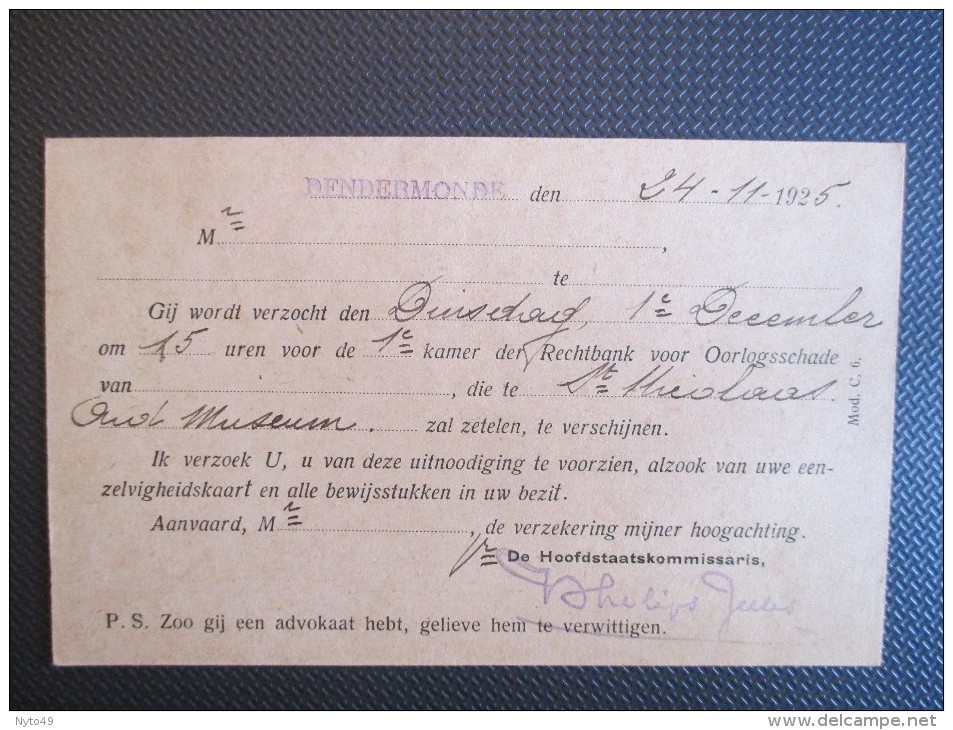 DENDERMONDE den 24-11-1925.
Mr ,
te
Gij wordt verzocht den Dinsdag, 1e December
om 15 uren voor de 1e kamer der Rechtbank voor Oorlogsschade
van , die te St Nicolaas
Oud Museum. zal zetelen, te verschijnen.
Ik verzoek U, u van deze uitnoodiging te voorzien, alzook van uwe een-
zelvigheidskaart en alle bewijsstukken in uw bezit.
Aanvaard, Mr , de verzekering mijner hoogachting.
De Hoofdstaatskommissaris,
P. S. Zoo gij een advokaat hebt, gelieve hem te verwittigen.
Mod. C. 6.
Nyto49
www.delcampe.net